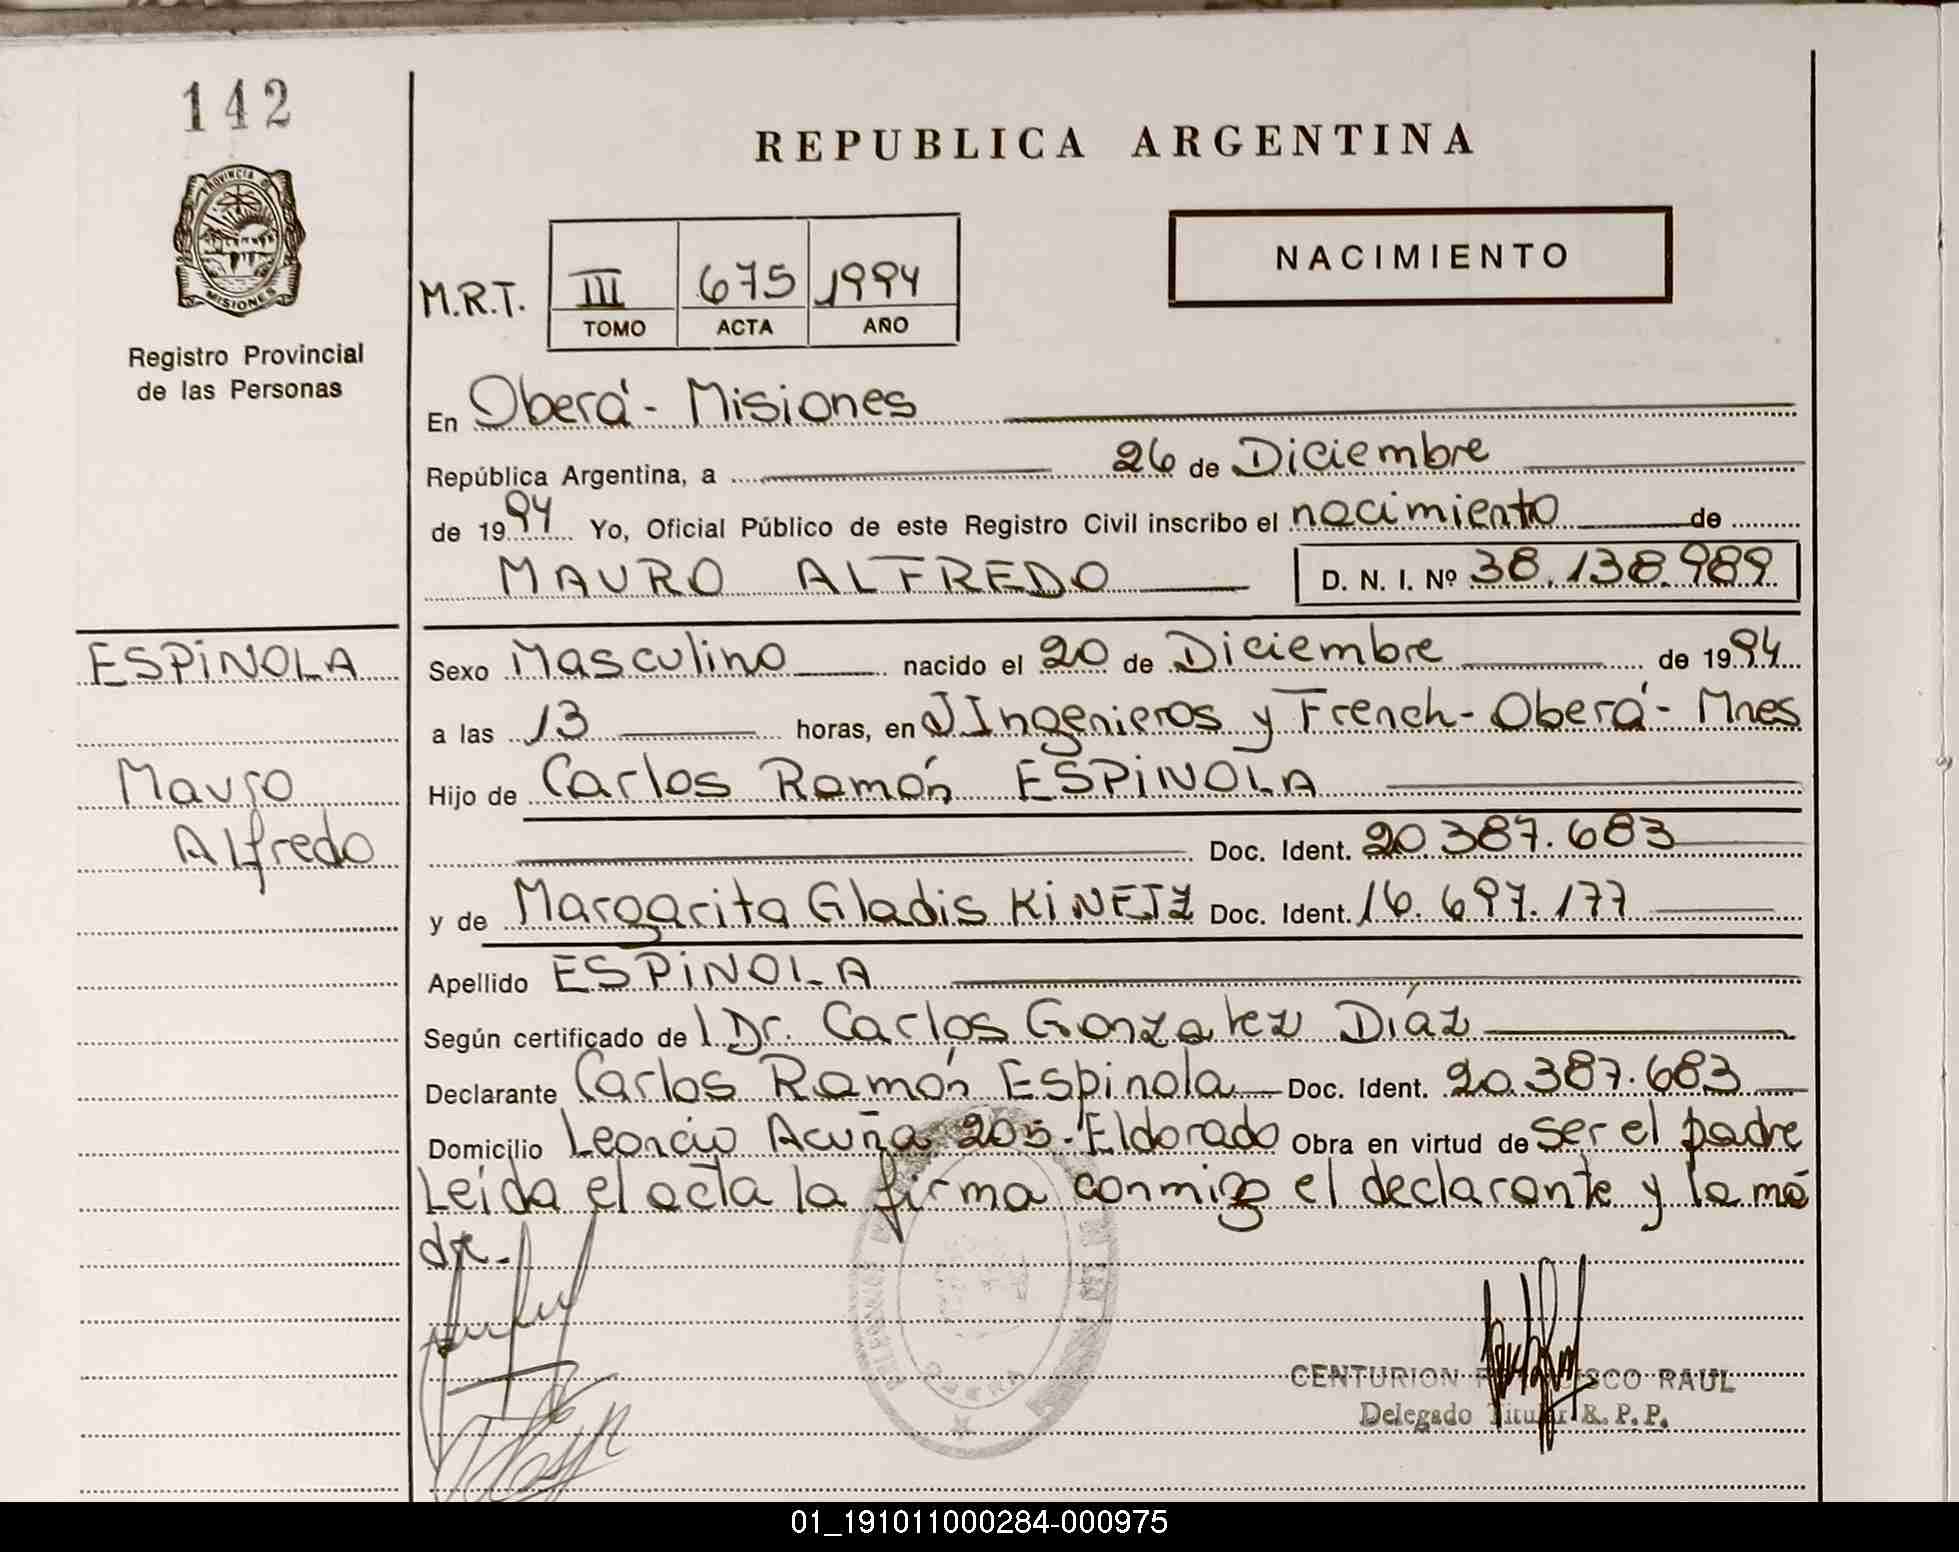 142
PROVINCIA DE
MISIONES
Registro Provincial
de las Personas
REPUBLICA ARGENTINA
NACIMIENTO
M.R.T. III 675 1994
TOMO ACTA AÑO
En Oberá - Misiones
República Argentina, a 26 de Diciembre
de 1994 Yo, Oficial Público de este Registro Civil inscribo el nacimiento de
MAURO ALFREDO D. N. I. Nº 38.138.989
ESPINOLA
Mauro
Alfredo
Sexo Masculino nacido el 20 de Diciembre de 1994
a las 13 horas, en JIngenieros y French - Oberá - Mnes
Hijo de Carlos Ramón ESPINOLA
Doc. Ident. 20.387.683
y de Margarita Gladis KINETZ Doc. Ident. 16.697.177
Apellido ESPINOLA
Según certificado de l Dr. Carlos Gonzalez Díaz
Declarante Carlos Ramón Espinola Doc. Ident. 20.387.683
Domicilio Leoncio Acuña 205 - Eldorado Obra en virtud de ser el padre
Leída el acta la firma conmigo el declarante y la ma
dre.-
OBERA
CENTURION RAUL
Delegado Titular R. P. P.
01_191011000284-000975